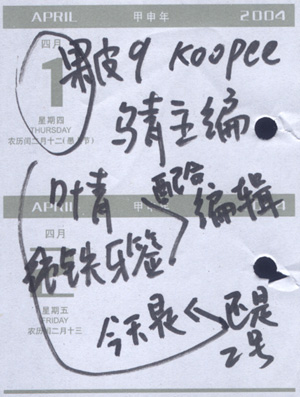 APRIL 甲申年 2004
四月
1 果皮9 Koopee
星期四 乌青主编
THURSDAY
农历闰二月十二(愚人节)
叶青 配合
APRIL 甲申年 2004
编辑
四月
纯铁牙签
星期五
FRIDAY 今天是 还是
农历闰二月十三 2号